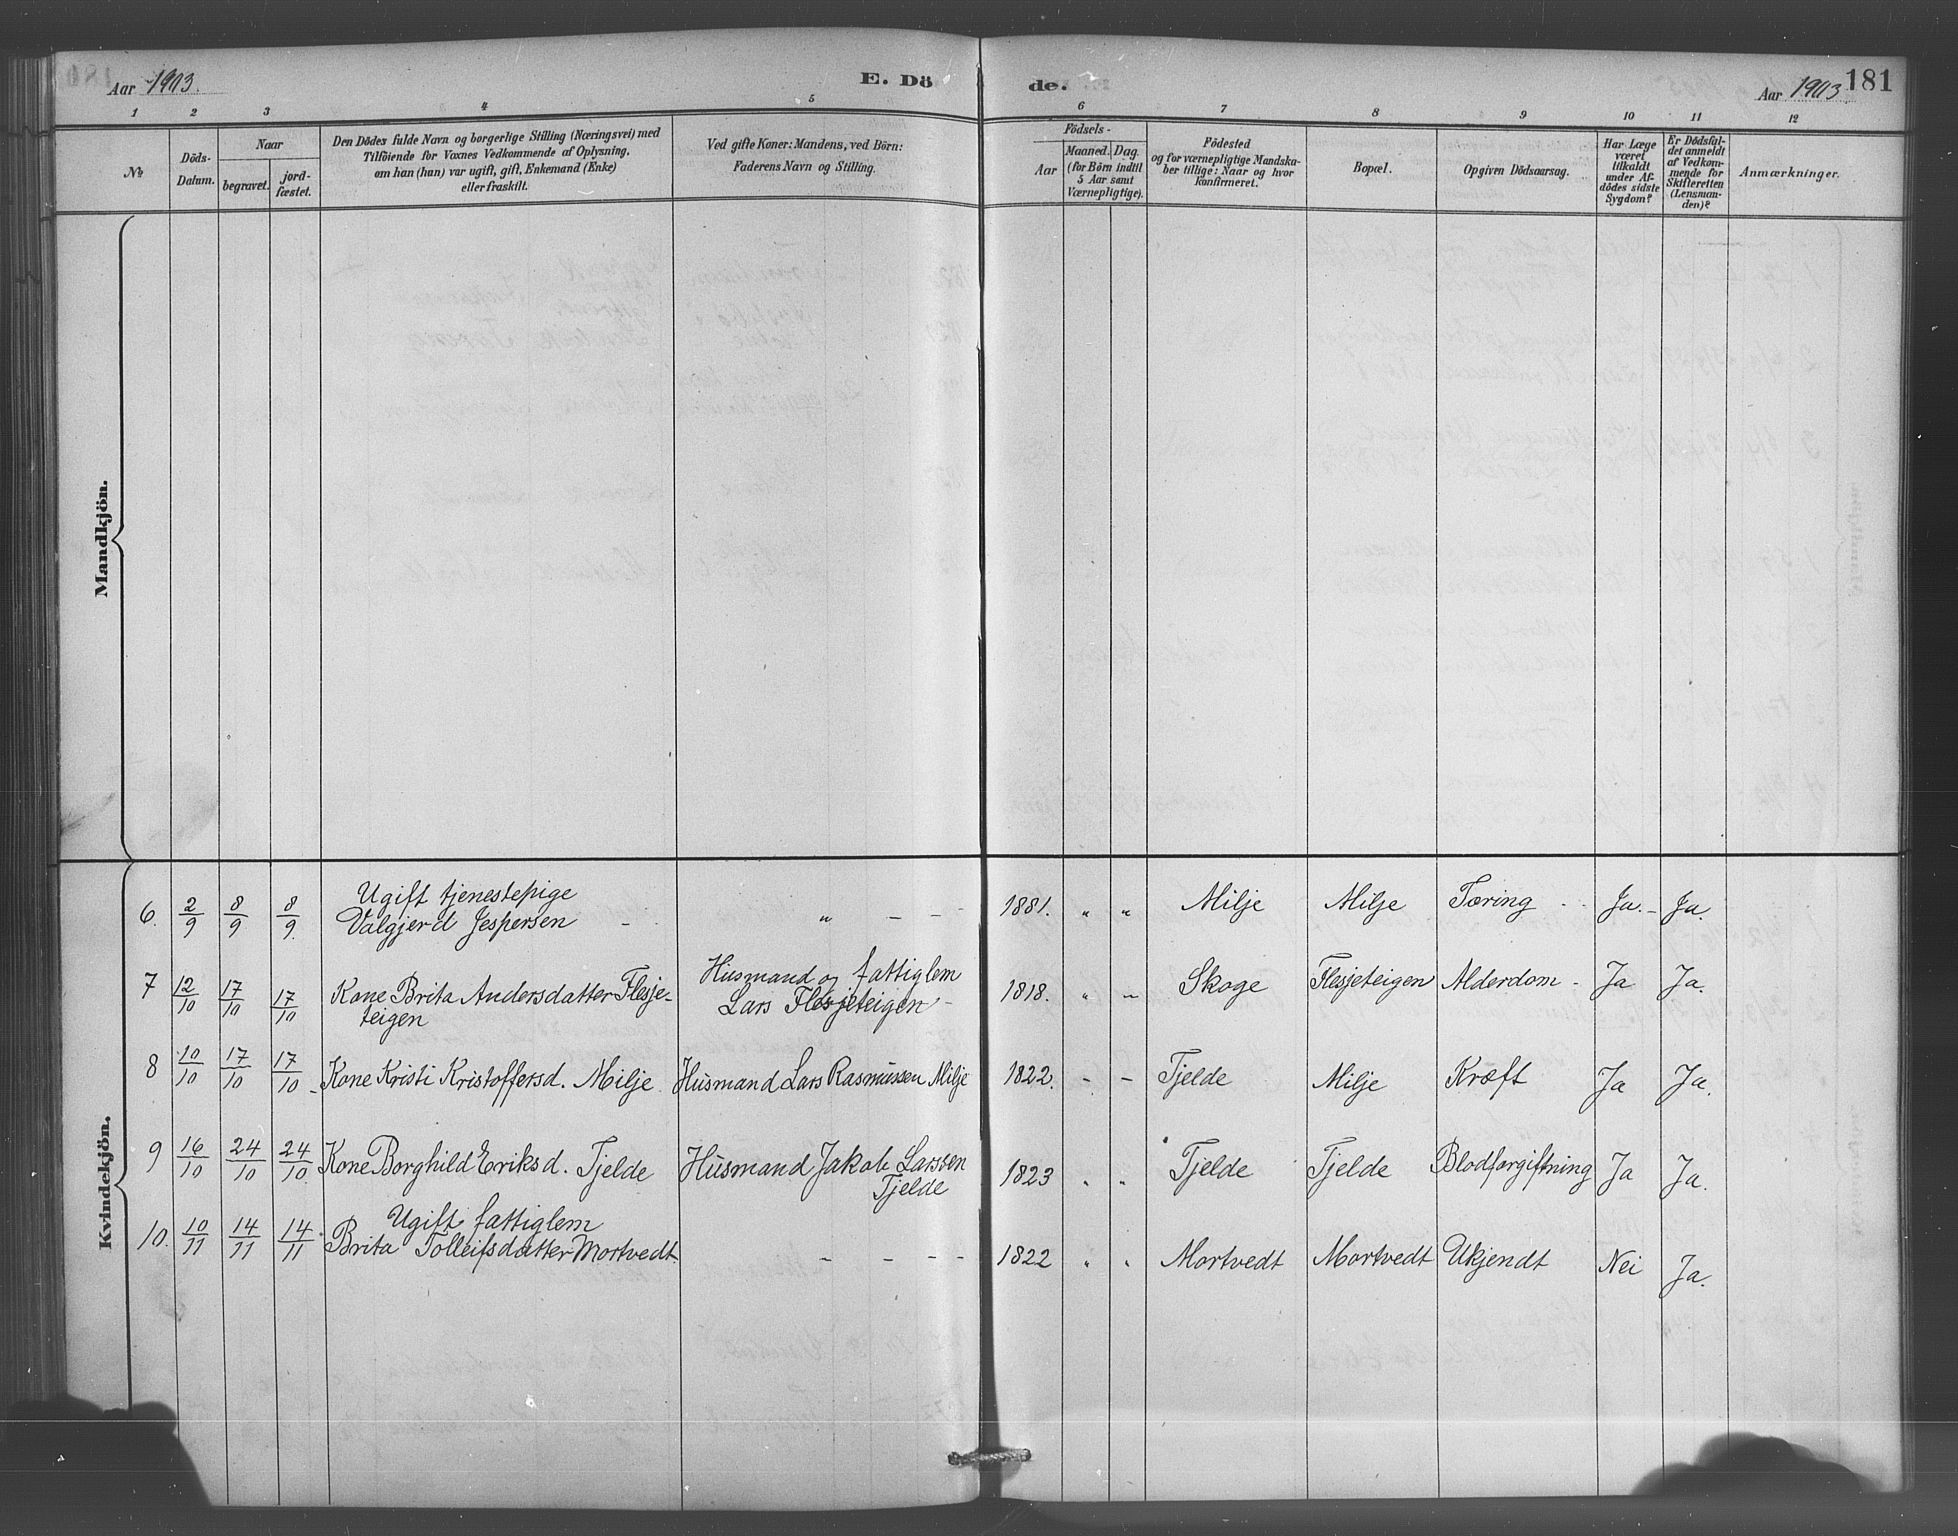 Aar 1903.
E. Dö
de.
Aar 1903
181
1 2 3 4 5 6 7 8 9 10 11 12
№
Döds-
Datum.
Naar
begravet.
jord-
fæstet.
Den Dödes fulde Navn og borgerlige Stilling (Næringsvei) med
Tilföiende for Voxnes Vedkommende af Oplysning,
om han (hun) var ugift, gift, Enkemand (Enke)
eller fraskilt.
Ved gifte Koner: Mandens, ved Börn:
Faderens Navn og Stilling.
Födsels-
Aar
Maaned. Dag.
(for Börn indtil
5 Aar samt
Værnepligtige).
Födested
og for værnepligtige Mandska-
ber tillige: Naar og hvor
konfirmeret.
Bopæl.
Opgiven Dödsaarsag.
Har Læge
været
tilkaldt
under Af-
dödes sidste
Sygdom?
Er Dödsfal-
det anmeldt
af Vedkom-
mende for
Skifteretten
(Lensman-
den)?
Anmærkninger.
Mandkjön.
Kvindekjön.
Ugift tjenestepige
6. 2/9 8/9 8/9. Valgjerd Jespersen - „ - - - 1881. „ „ Milje Milje Tæring - Ja. - Ja.
Husmand og fattiglem
7 12/10 17/10 17/10 Kone Brita Andersdatter Flesje- Lars Flesjeteigen - 1818. „ - Skoge Flesjeteigen Alderdom - Ja Ja.
teigen
8 10/10 17/10 17/10 - Kone Kristi Kristoffersd. Milje. Husmand Lars Rasmussen Milje 1822. - - Tjelde Milje Kræft Ja Ja.
9 16/10 24/10 24/10 Kone Borghild Eriksd. Tjelde Husmand Jakob Larssen 1823 „ „ Tjelde Tjelde Blodforgiftning Ja Ja.
Tjelde
Ugift fattiglem
10. 10/11 14/11 14/11 Brita Tolleifsdatter Mortvedt. - - - - 1822 „ „ Mortvedt Mortvedt Ukjendt Nei Ja.